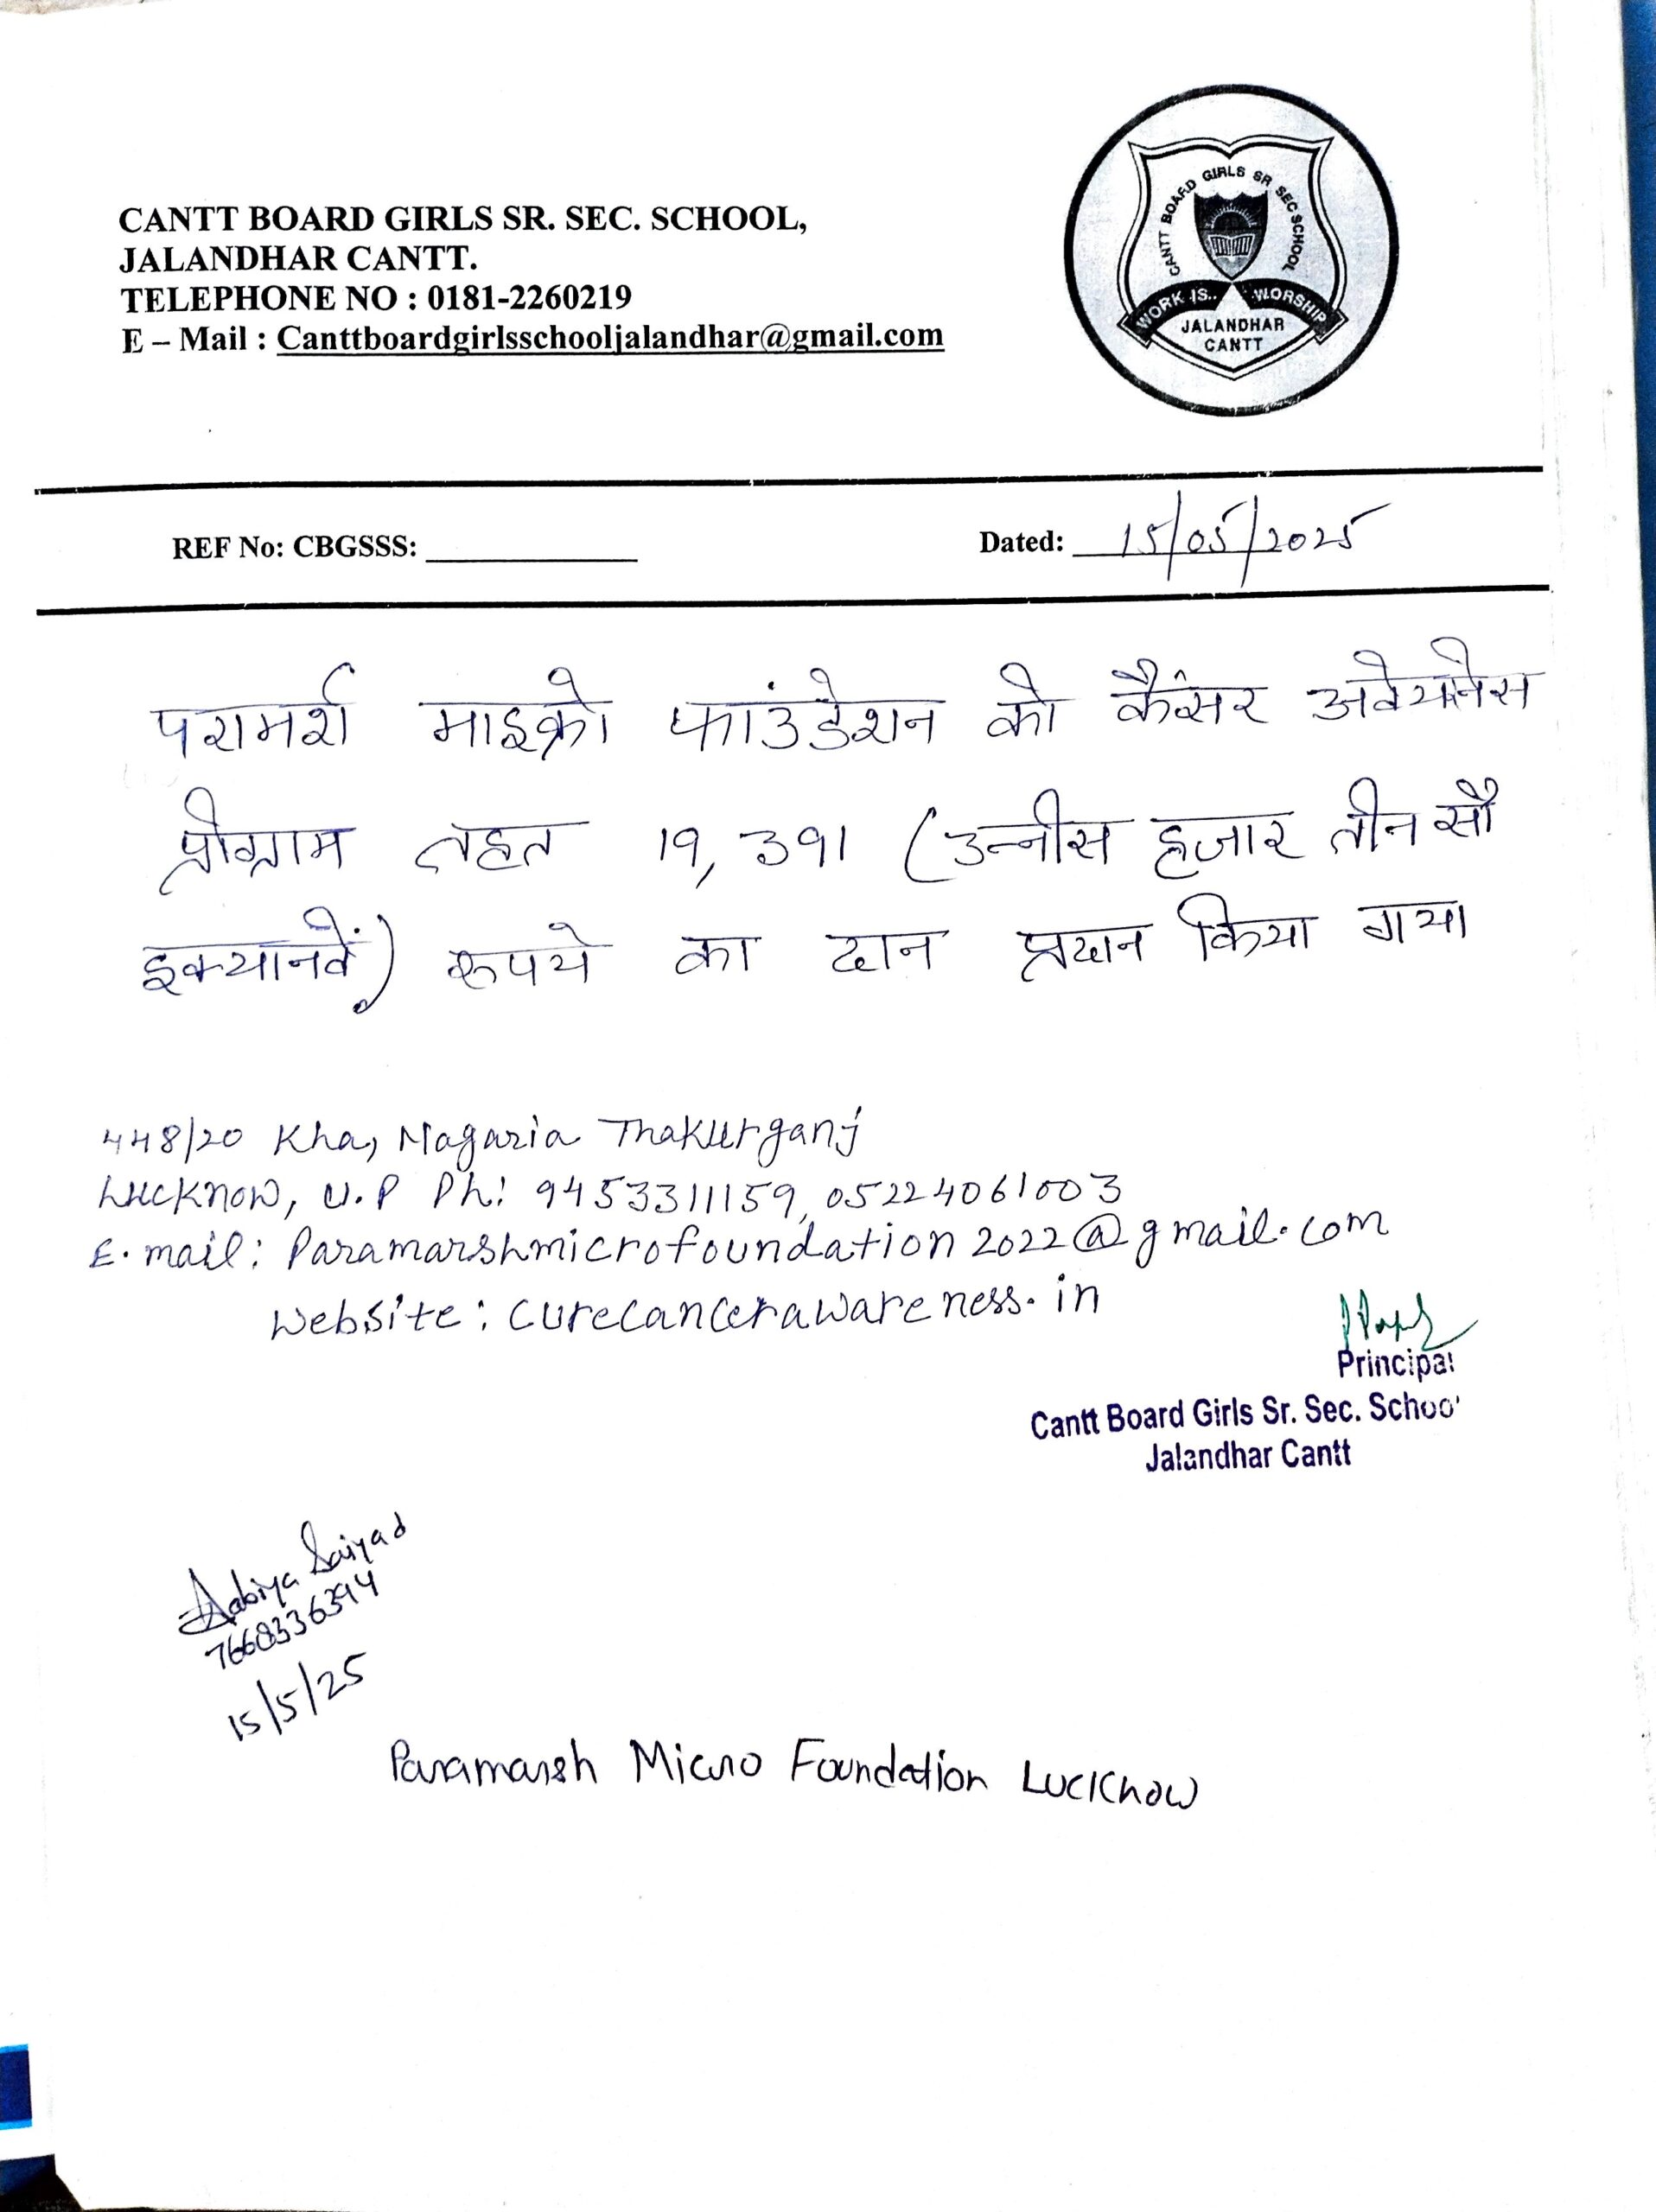 CANTT BOARD GIRLS SR. SEC. SCHOOL,
JALANDHAR CANTT.
TELEPHONE NO : 0181-2260219
E – Mail : Canttboardgirlsschooljalandhar@gmail.com
CANTT BOARD GIRLS SR SEC SCHOOL
WORK IS.. WORSHIP
JALANDHAR
CANTT
REF No: CBGSSS:
Dated: 15/05/2025
परामर्श माइक्रो फाउंडेशन को कैंसर अवेयरनेस
प्रोग्राम तहत 19,391 (उन्नीस हजार तीन सौ
इक्यानवें) रूपये का दान प्रदान किया गया
448/20 Kha, Nagaria Thakurganj
Lucknow, U.P Ph: 9453311159, 05224061003
E.mail: Paramarshmicrofoundation2022@gmail.com
Website: curecancerawareness.in
Principal
Cantt Board Girls Sr. Sec. School
Jalandhar Cantt
Saiyad
7668336394
15/5/25
Paramarsh Micro Foundation Lucknow